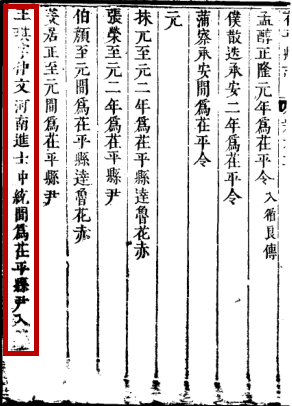 孟醇正隆元年爲茌平令入循良傳
僕散逸承安二年爲茌平令
蒲察承安間爲茌平令
元
抹兀至元二年爲茌平縣達魯花赤
張榮至元二年爲茌平縣尹
伯顏至元間爲茌平縣達魯花赤
居正至元間爲茌平縣尹
王字仲文河南進士中統間爲茌平縣尹入